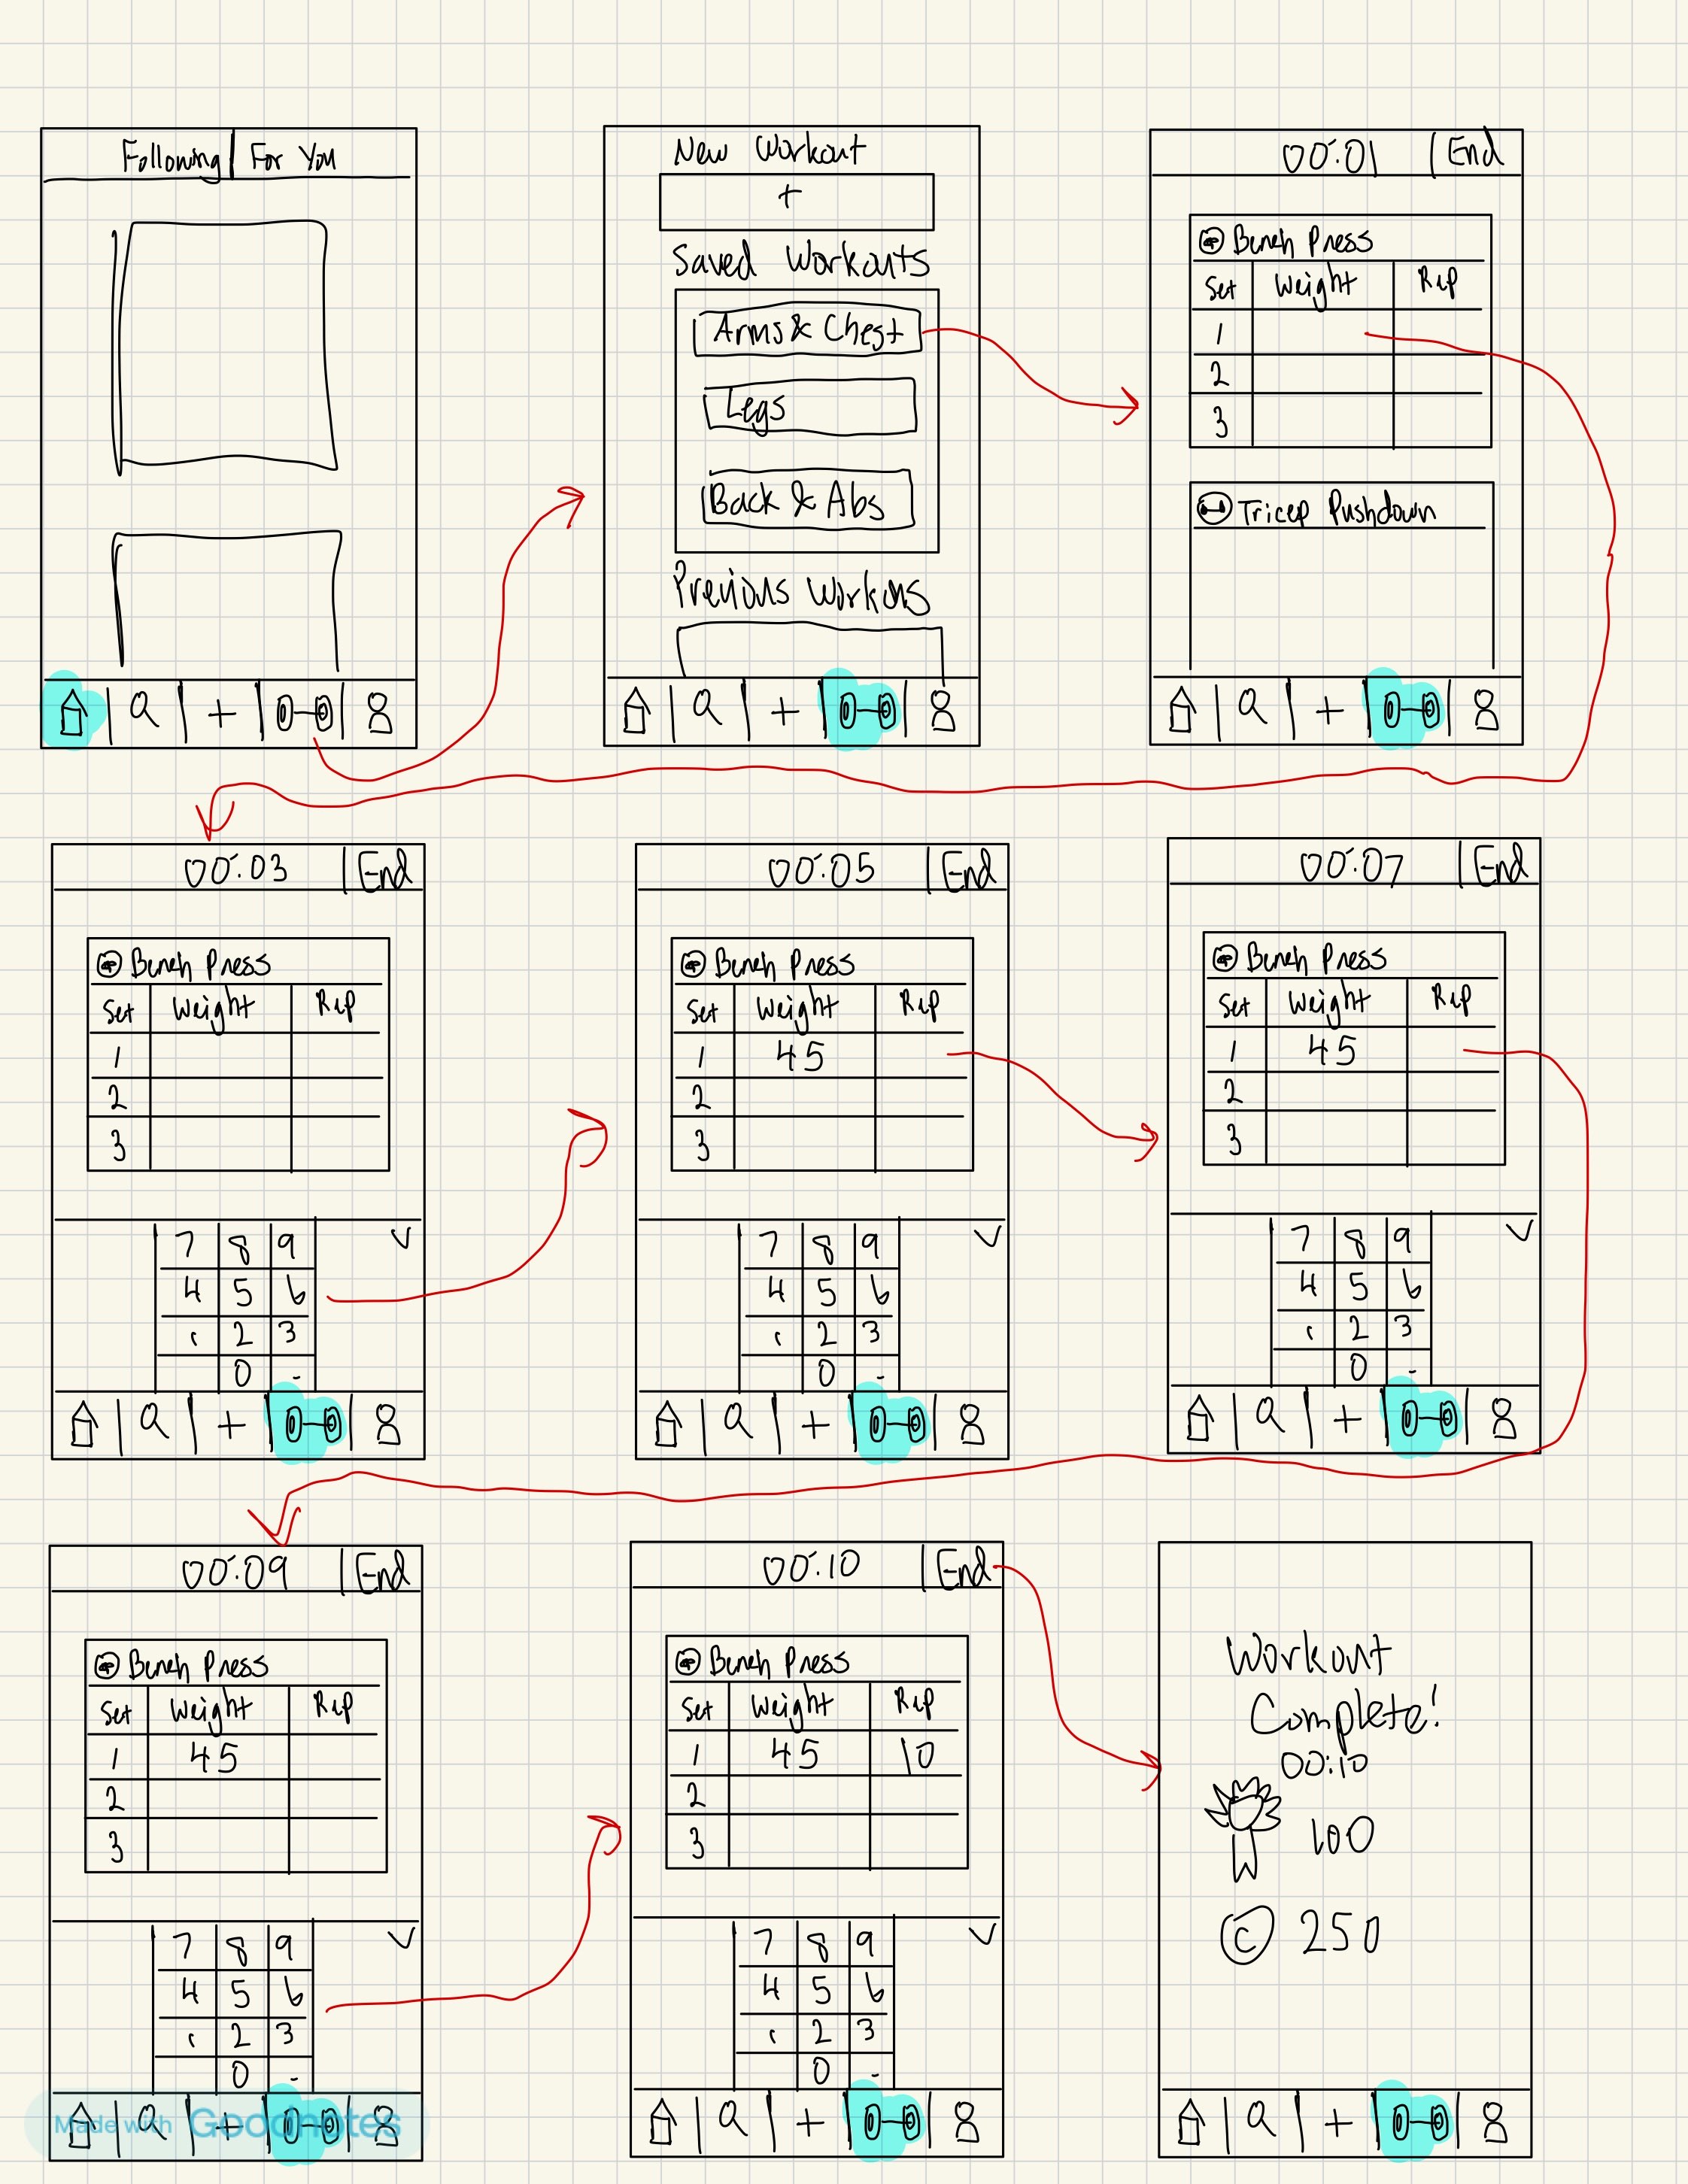 Following | For You
New Workout
+
Saved Workouts
Arms & Chest
Legs
Back & Abs
Previous Workous
00:01 | End
Bench Press
Set Weight Rep
1
2
3
Tricep Pushdown
00:03 | End
Bench Press
Set Weight Rep
1
2
3
7 8 9
4 5 6
1 2 3
0 .
00:05 | End
Bench Press
Set Weight Rep
1 45
2
3
7 8 9
4 5 6
1 2 3
0 .
00:07 | End
Bench Press
Set Weight Rep
1 45
2
3
7 8 9
4 5 6
1 2 3
0 .
00:09 | End
Bench Press
Set Weight Rep
1 45
2
3
7 8 9
4 5 6
1 2 3
0 .
Made with Goodnotes
00:10 | End
Bench Press
Set Weight Rep
1 45 10
2
3
7 8 9
4 5 6
1 2 3
0 .
Workout
Complete!
00:10
100
© 250